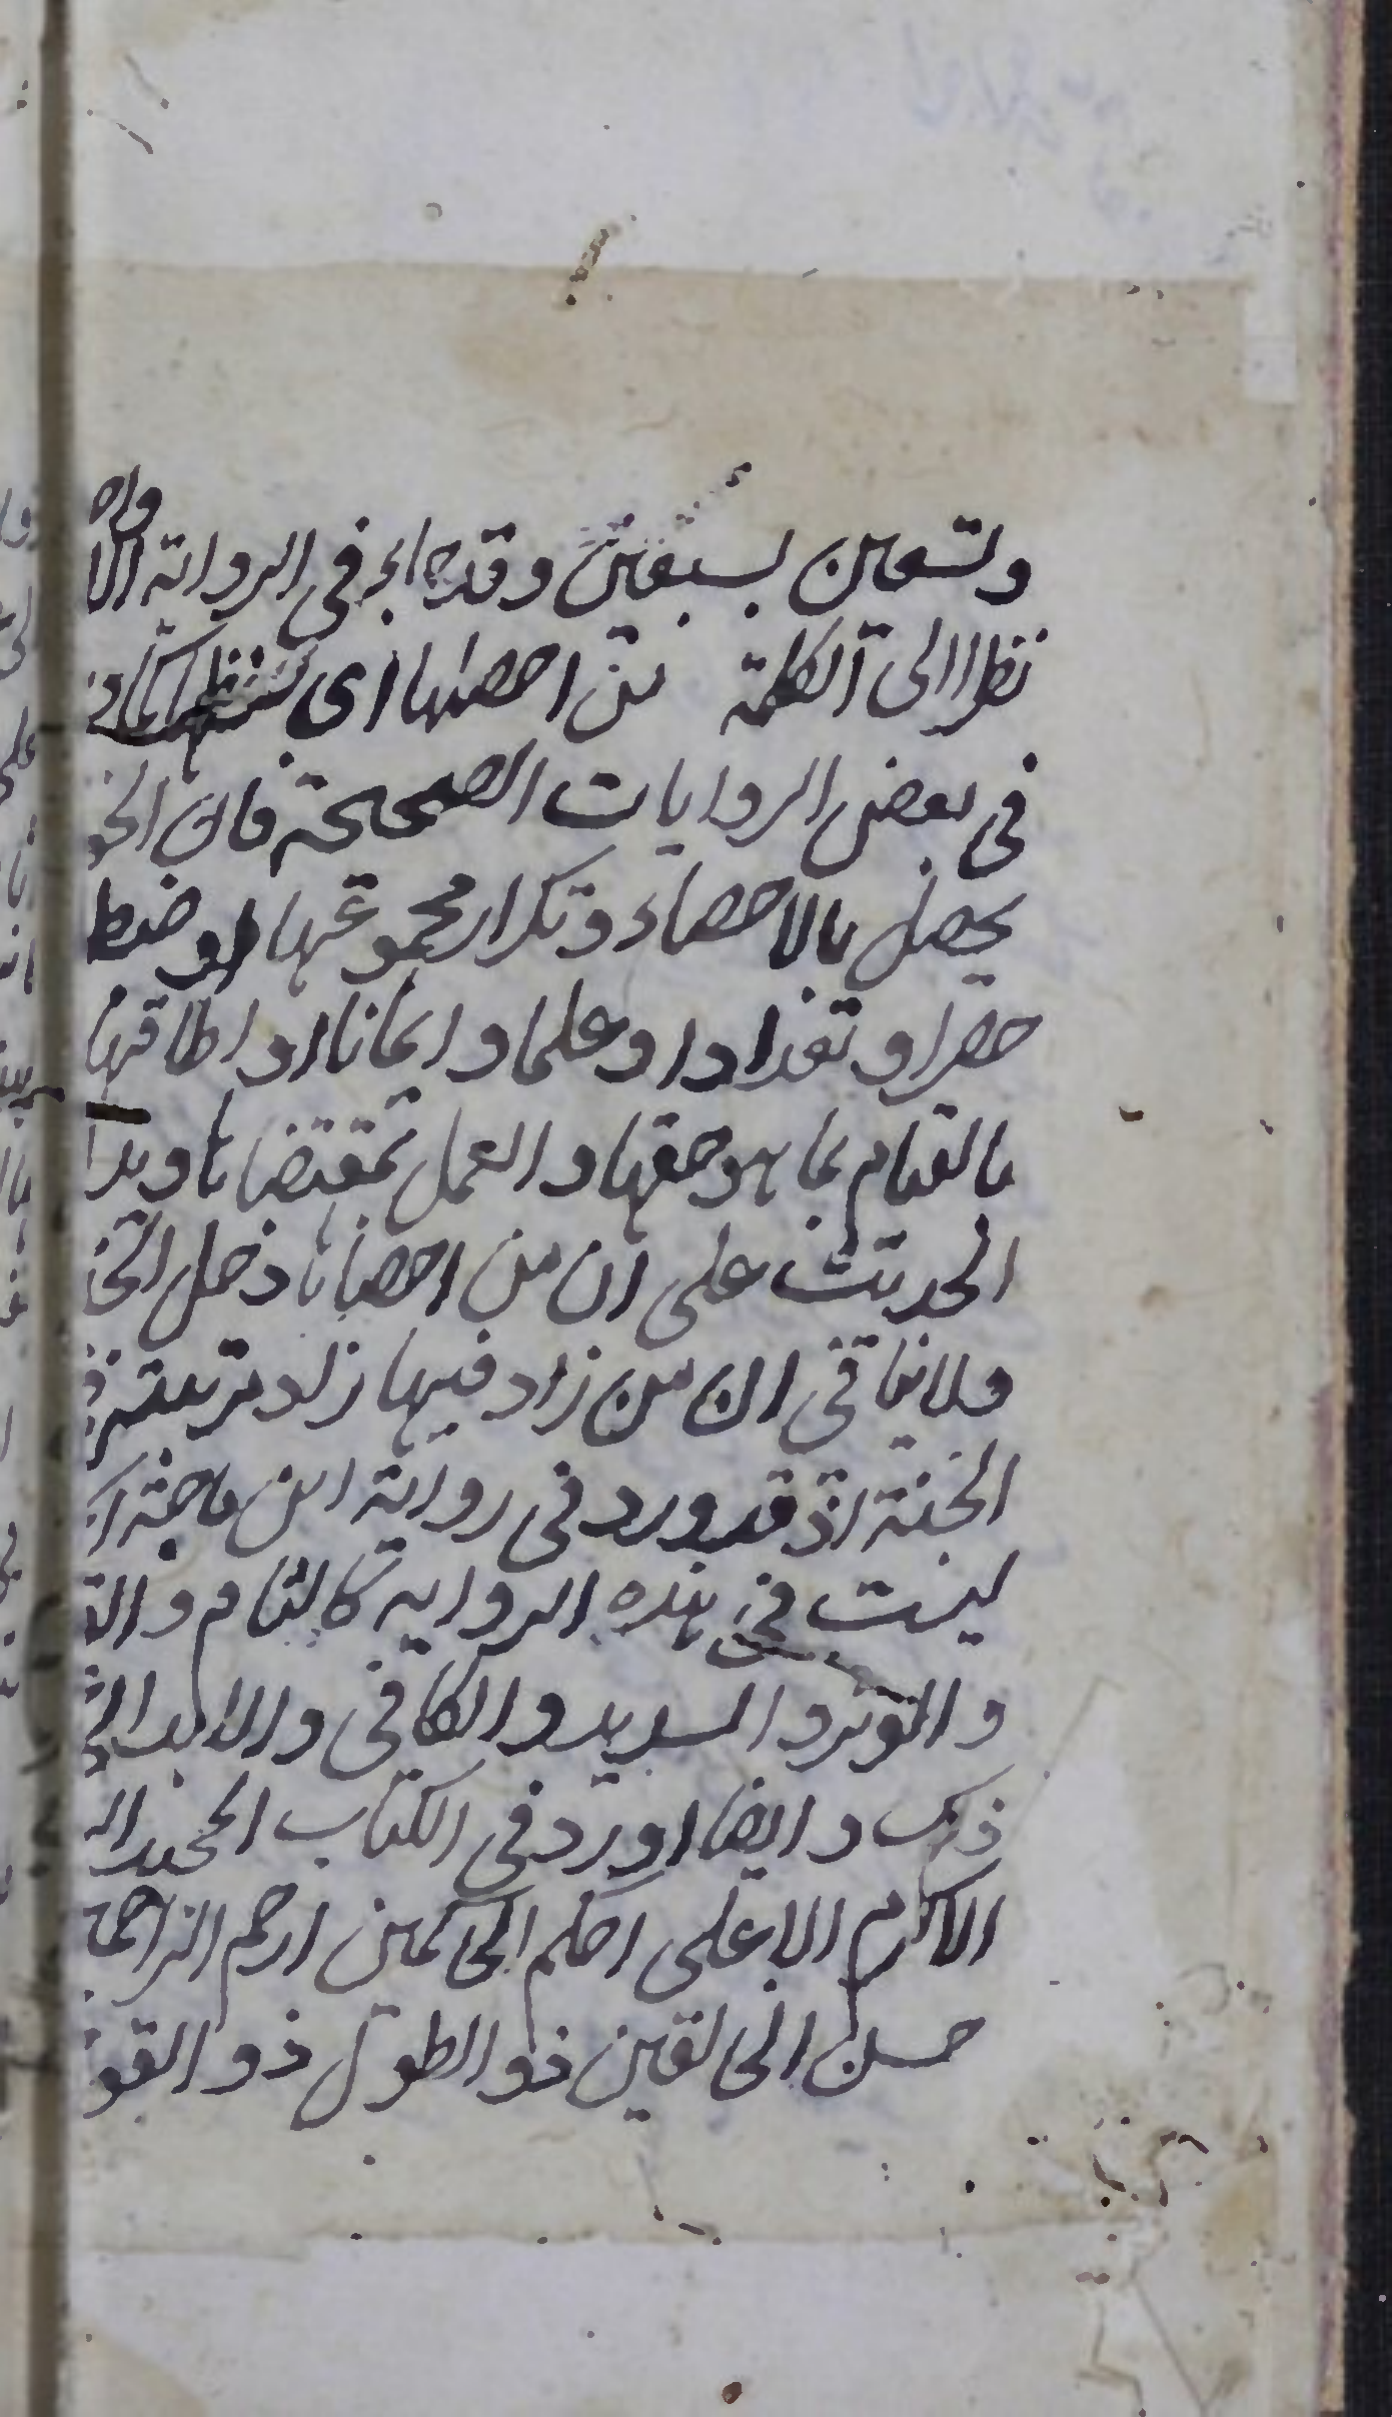 وتسعين بسبعين وقد جاء في الرواية الا واحدة
نظرا الى الكلمة من احصاها اى حفظها كما
في بعض الروايات الصحيحة فان الحفظ
يحصل بالاحصاء وتكرار مجموعها او ضبط
حصرا وتعدادا وعلما وايمانا او اطاقها
بالقيام بما هو حقها والعمل بمقتضاها ويدل
الحديث على ان من احصاها دخل الجنة
ولا ينافى ان من زاد فيها زاد مرتبته في
الجنة اذ قد ورد في رواية ابن ماجة
ليست في هذه الرواية كالتام وال
والوتر والسديد والكافي والابد
ذلك وايضا اورد في الكتاب المجيد ال
الاكرم الاعلى احكم الحاكمين ارحم الراحمين
حسن الخالقين ذو الطول ذو القوة